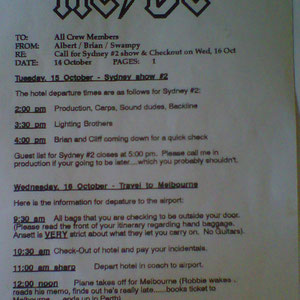 AC/DC
TO: All Crew Members
FROM: Albert / Brian / Swampy
RE: Call for Sydney #2 show & Checkout on Wed, 16 Oct
DATE: 14 October PAGES: 1
Tuesday, 15 October - Sydney show #2
The hotel departure times are as follows for Sydney #2:
2:00 pm Production, Carps, Sound dudes, Backline
3:30 pm Lighting Brothers
4:00 pm Brian and Cliff coming down for a quick check
Guest list for Sydney #2 closes at 5:00 pm. Please call me in
production if your going to be later....which you probably shouldn't.
Wednesday, 16 October - Travel to Melbourne
Here is the information for departure to the airport:
9:30 am All bags that you are checking to be outside your door.
(Please read the front of your itinerary regarding hand baggage.
Ansett is VERY strict about what they let you carry on. No Guitars).
10:30 am Check-Out of hotel and pay your incidentals.
11:00 am sharp Depart hotel in coach to airport.
12:00 noon Plane takes off for Melbourne (Robbie wakes ..
reads his memo, finds out he's really late.....books ticket to
Melbourne ..... ends up in Perth)